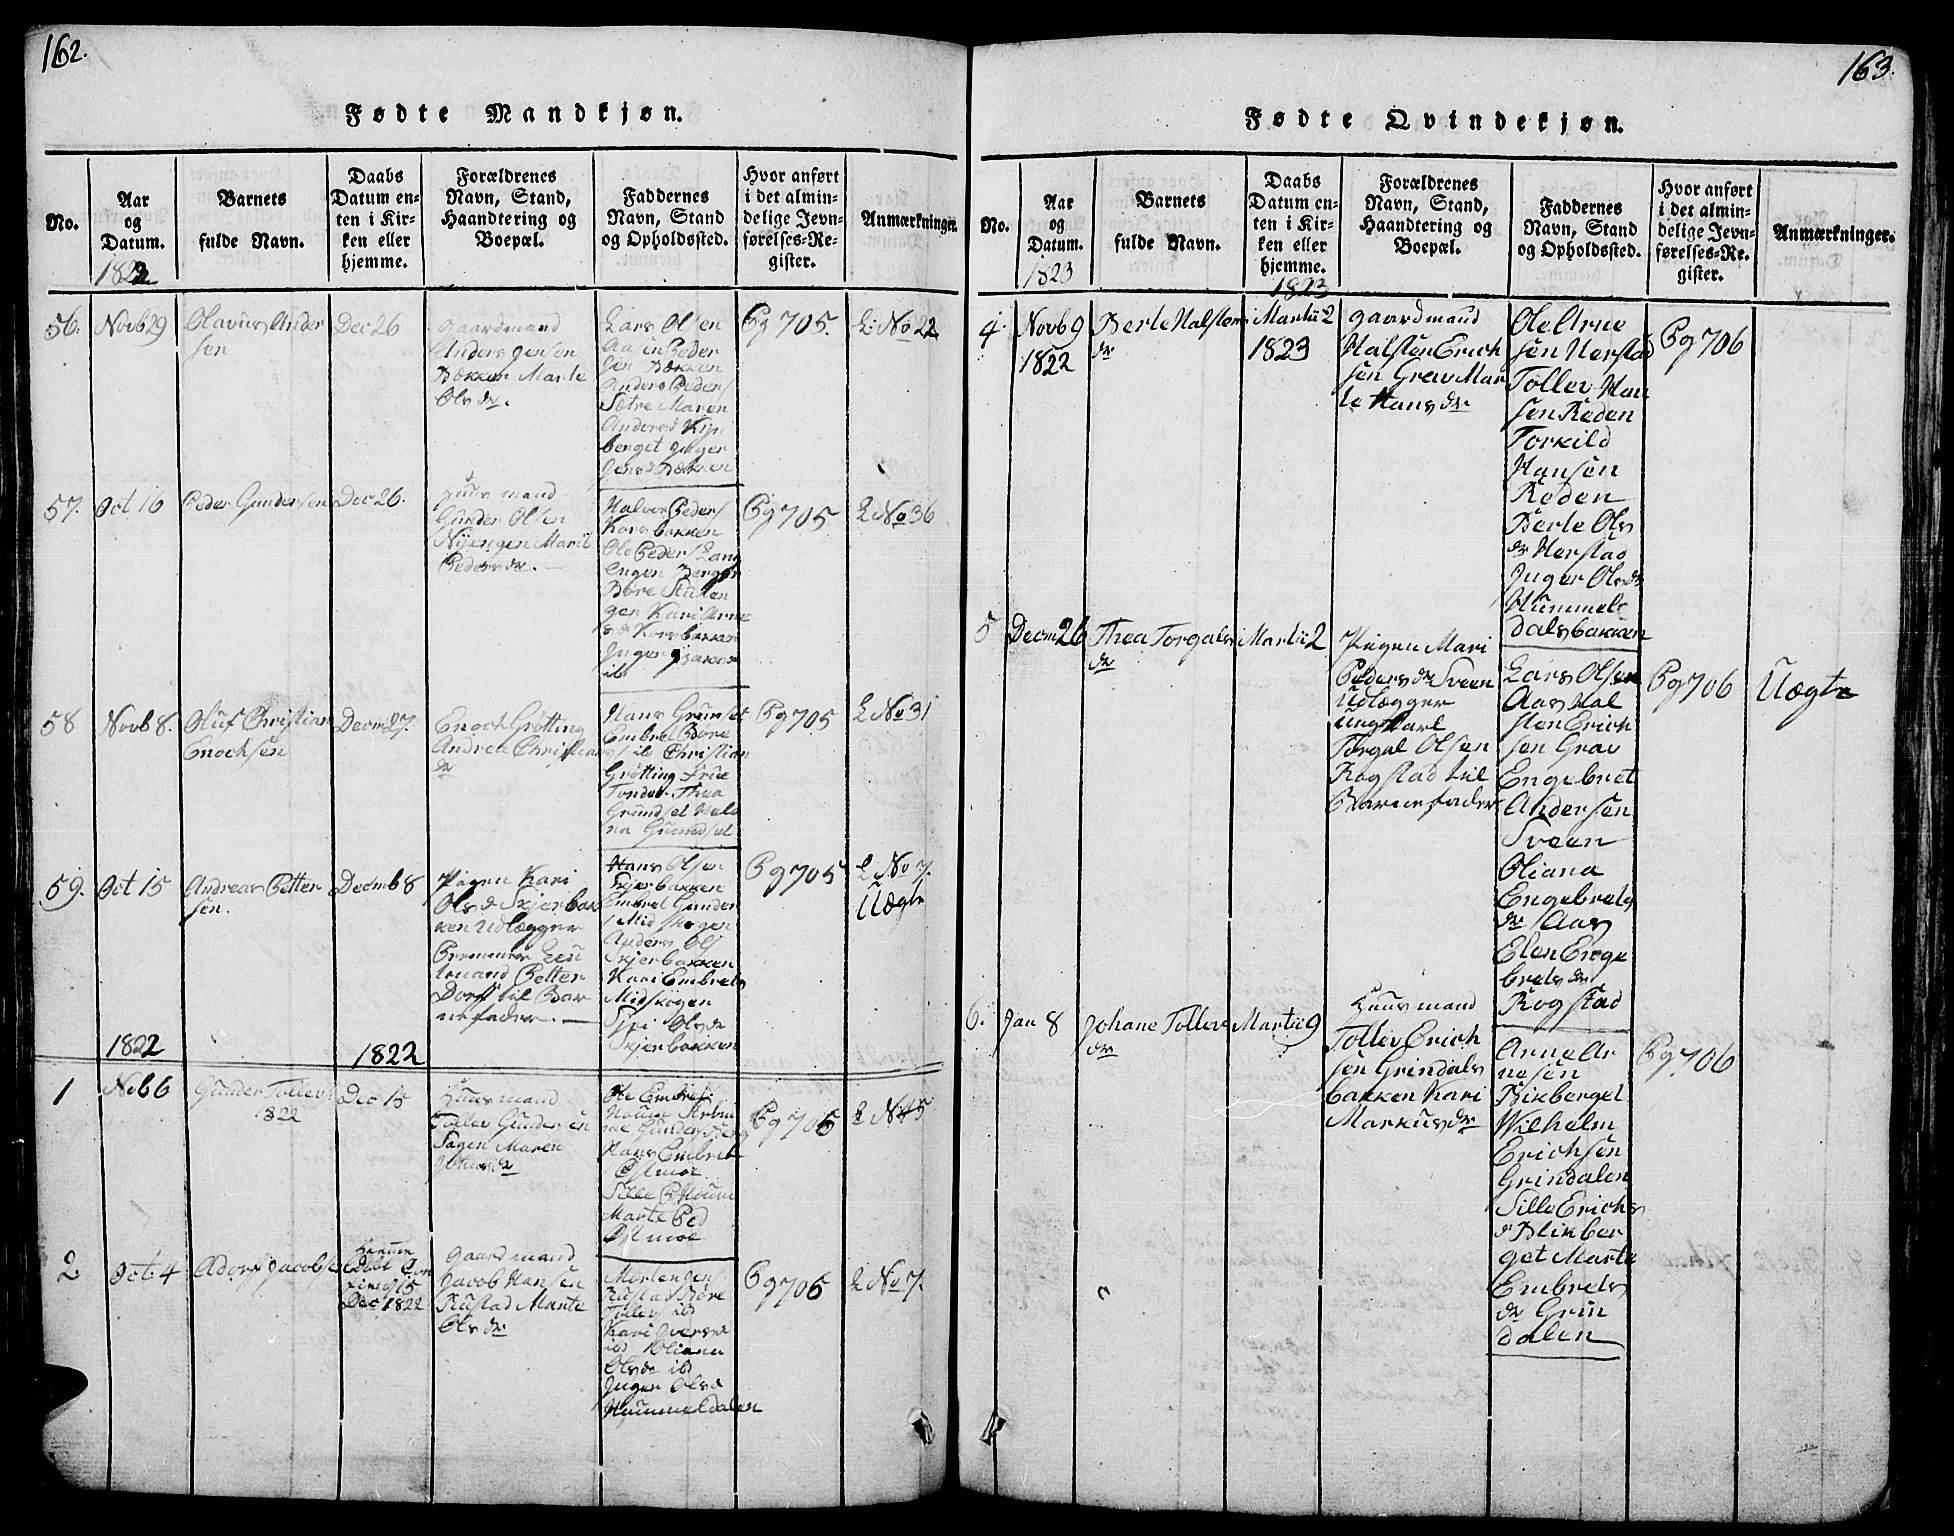 162.
Fødte Mandkjøn.
No.
Aar
og
Datum.
1822
Barnets
fulde Navn.
Daabs
Datum en-
ten i Kir-
ken eller
hjemme.
Forældrenes
Navn, Stand,
Haandtering og
Boepæl.
Faddernes
Navn, Stand
og Opholdssted.
Hvor anført
i det almin-
delige Jevn-
førelses-Re-
gister.
Anmærkninger.
56.
Novb 29
Olavus Ander
sen
Dec 26
Gaardmand
Anders Jensen
Bækken Marte
Ols dr.
Lars Olsen
Aasen Peder
sen Bækken
Anders Peders
Sætre Maren
Anders d
berget Inger
Jens d Bækken
Pg 705.
L: No 22
57.
Oct 16
Peder Gundersen
Dec 26.
Huus mand
Gunder Olsen
Nyengen Marit
Peders dr.
Halvor Peders
Korsbakken
Ole Peders Lang
engen
Bore Stuten
gen Kari Arne
s d Korsbakken
Inger
ib
Pg 705
L No 36
58
Novb 8.
Oluf Christian
Enochsen
Decm 27.
Enoch Grøtting
Andrea Christians
dr
Hans Grunset
Embret Bore
s ib Christian
Grøtting Frue
Tonder Thea
Grundset Hele
na Grundset
Pg 705
L No 31
59.
Oct 15
Andreas Petter
sen.
Decmb 8
Pigen Kari
Ols d Skjerbak
ken Udlægger
Premier Lieu
tenand Petter
Dorff til Bar
nefader.
Hans Olsen
Skjerbakken
Embret Gunder
s Midskogen
Anders Ols
Skjerbakken
Kari Embrets
Midskogen
Siri Ols dr
Skjerbakken
Pg 705
L No 7.
Uægte
1822
1822
1
Nob 6
Gunder Tollevs
1822
Dec 15
Huus mand
Tollev Gundersen
Sagen Maren
Ole Embrets
Gunders Berg
Hans Embrets
Østmoe
Sille
Marte Ped
Østmoe
Pg 706
L No 5
2
Oct. 4
Jacobs
Hjemme
Døbt Con
firm 15
Dec 1822
Gaardmand
Jacob Hansen
Rustad Marte
Ols dr
Morten Jens
Rustad Bore
Tollevs ib
Kari Ivers d
ib Oliana
Ols dr ib
Inger Ols d
Hummeldalen
Pg 706
L No 7.
163.
Fødte Qvindekjøn.
No.
Aar
og
Datum.
1823
Barnets
fulde Navn.
Daabs
Datum en-
ten i Kir-
ken eller
hjemme.
1823
Forældrenes
Navn, Stand,
Haandtering og
Boepæl.
Faddernes
Navn, Stand
og Opholdssted.
Hvor anført
i det almin-
delige Jevn-
førelses-Re-
gister.
Anmærkninger.
4.
Novb 9
1822
Berte Halstens
dr
Martii 2
1823
Gaardmand
Halsten Erich
sen Grav Mar
te Hans dr
Ole Arne
sen Herstad
Tollev Han
sen Røden
Torkild
Hansen
Røden
Berte Ols
dr Herstad
Inger Ols dr
Hummel
dalsbakken
Pg 706
5
Decm 26
Thea Torgals
dr
Martii 2
Pigen Mari
Peders dr Sveen
Udlægger
Ungkarl
Torgal Olsen
Rogstad til
Barnefader
Lars Olsen
Aas Hal
sten Erich
sen Grav
Engebret
Andersen
Sveen
Oliana
Engebrets
dr Aas
Elen Enge
brets dr
Rogstad
Pg 706
Uægte
6.
Jan 8
Johane Tollevs
dr
Martii 9
Huus mand
Tollev Erich
sen Grindals
bakken Kari
Markus dr
Arne Ar
nesen
Blikberget
Wilhelm
Erichsen
Grindalen
Sille Erichs
d Blikber
get Marte
Embrets
dr Grin
dalen
Pg 706